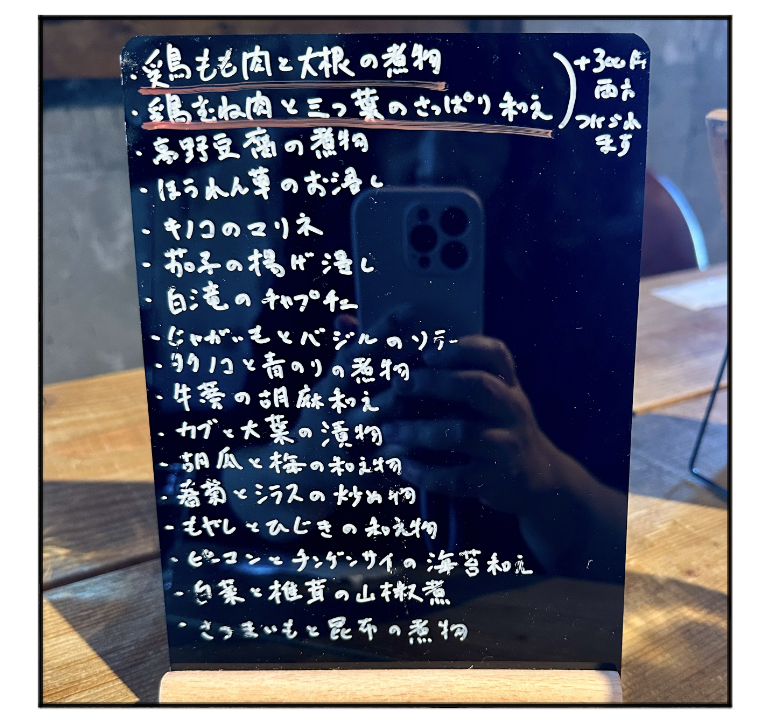 ・鶏もも肉と大根の煮物
・鶏むね肉と三つ葉のさっぱり和え
+300円
両方
つけられ
ます
・高野豆腐の煮物
・ほうれん草のお浸し
・キノコのマリネ
・茄子の揚げ浸し
・白滝のチャプチェ
・じゃがいもとバジルのソテー
・タケノコと青のりの煮物
・牛蒡の胡麻和え
・カブと大葉の漬物
・胡瓜と梅の和え物
・春菊とシラスの炒め物
・もやしとひじきの和え物
・ピーマンとチンゲンサイの海苔和え
・白菜と椎茸の山椒煮
・さつまいもと昆布の煮物